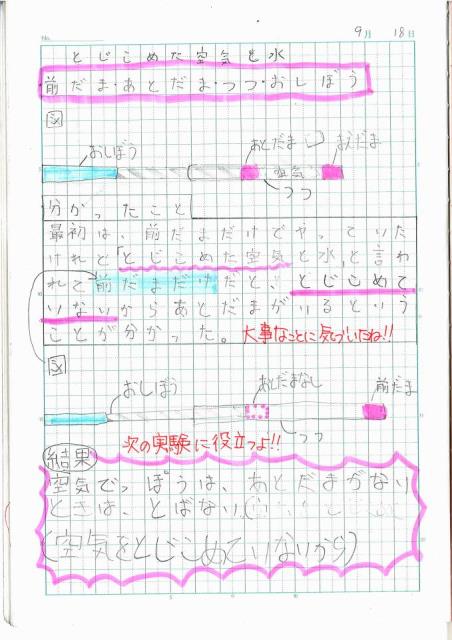 No.
9月 18日
とじこめた空気と水
前だま・あとだま・つつ・おしぼう
図
おしぼう
あとだま
まえだま
空気
つつ
分かったこと
最初は、前だまだけでやっていた
けれど「とじこめた空気と水」と言わ
れて前だまだけだと、とじこめて
いないからあとだまがいるという
ことが分かった。
大事なことに気づいたね!!
図
おしぼう
あとだまなし
前だま
つつ
次の実験に役立つよ!!
結果
空気でっぽうは、あとだまがない
ときは、とばない。
(空気をとじこめていないから)